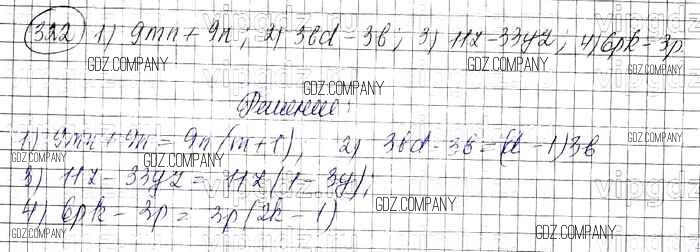 322) 1) 9mn + 9n; 2) 3bd - 3b; 3) 11z - 33yz; 4) 6pk - 3p
GDZ.COMPANY GDZ.COMPANY GDZ.COMPANY GDZ.COMPANY
Решение:
1) 9mn + 9n = 9n(m+1), 2) 3bd - 3b = (d - 1)3b
GDZ.COMPANY GDZ.COMPANY GDZ.COMPANY
3) 11z - 33yz = 11z(1 - 3y);
4) 6pk - 3p = 3p(2k - 1)
GDZ.COMPANY GDZ.COMPANY GDZ.COMPANY GDZ.COMPANY